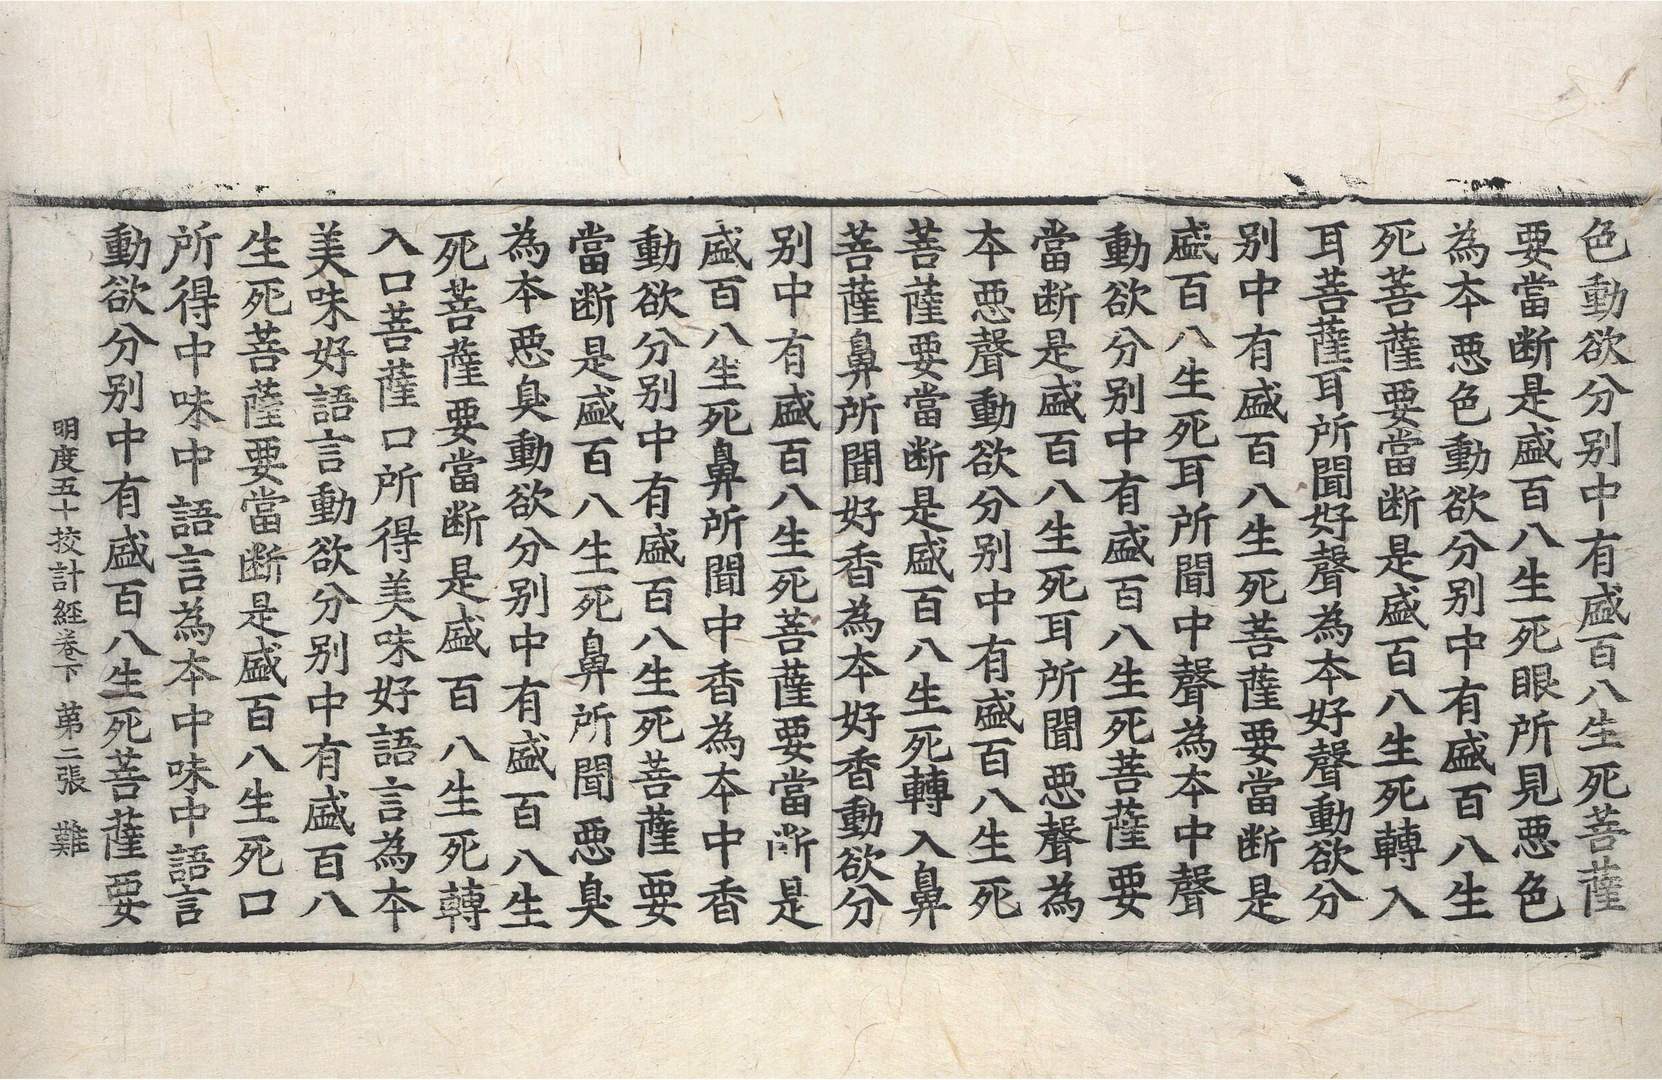 色動欲分别中有盛百八生死菩薩
要當断是盛百八生死眼所見悪色
為本悪色動欲分别中有盛百八生
死菩薩要當断是盛百八生死轉入
耳菩薩耳所聞好聲為本好聲動欲分
别中有盛百八生死菩薩要當断是
盛百八生死耳所聞中聲為本中聲
動欲分别中有盛百八生死菩薩要
當断是盛百八生死耳所聞悪聲為
本悪聲動欲分别中有盛百八生死
菩薩要當断是盛百八生死轉入鼻
菩薩鼻所聞好香為本好香動欲分
别中有盛百八生死菩薩要當断是
盛百八生死鼻所聞中香為本中香
動欲分别中有盛百八生死菩薩要
當断是盛百八生死鼻所聞悪臭
為本悪臭動欲分别中有盛百八生
死菩薩要當断是盛百八生死轉
入口菩薩口所得美味好語言為本
美味好語言動欲分别中有盛百八
生死菩薩要當断是盛百八生死口
所得中味中語言為本中味中語言
動欲分别中有盛百八生死菩薩要
明度五十挍計經卷下 第二張 難